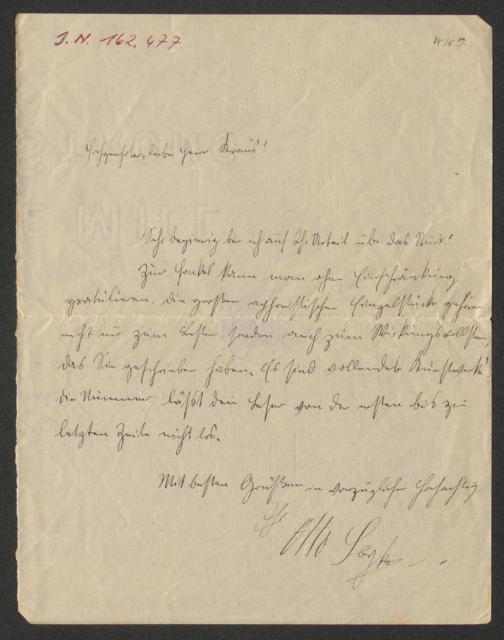 J. N. 162.477
Hochgeehrter, lieber Herr Kraus!
Sehr begierig bin ich auf Ihr Urteil über das Stück!
Zur Fackel kann man ohne Einschränkung
gratulieren. Die grossen aphoristischen Einzelstücke gehören
nicht nur zum Besten, sondern auch zum Wirkungsvollsten,
das Sie geschrieben haben. Es sind vollendete Kunstwerke!
die Nummer lässt den Leser von der ersten bis zur
letzten Zeile nicht los.
Mit besten Grüssen in vorzüglicher Hochachtung
Ihr
Otto Soyka